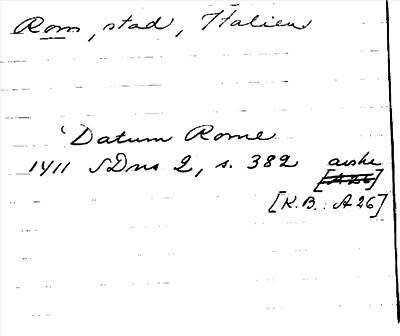 Rom, stad, Italien
'Datum Rome
1411 SDns 2, s. 382 avskr
[A 26]
[K.B.: A 26]